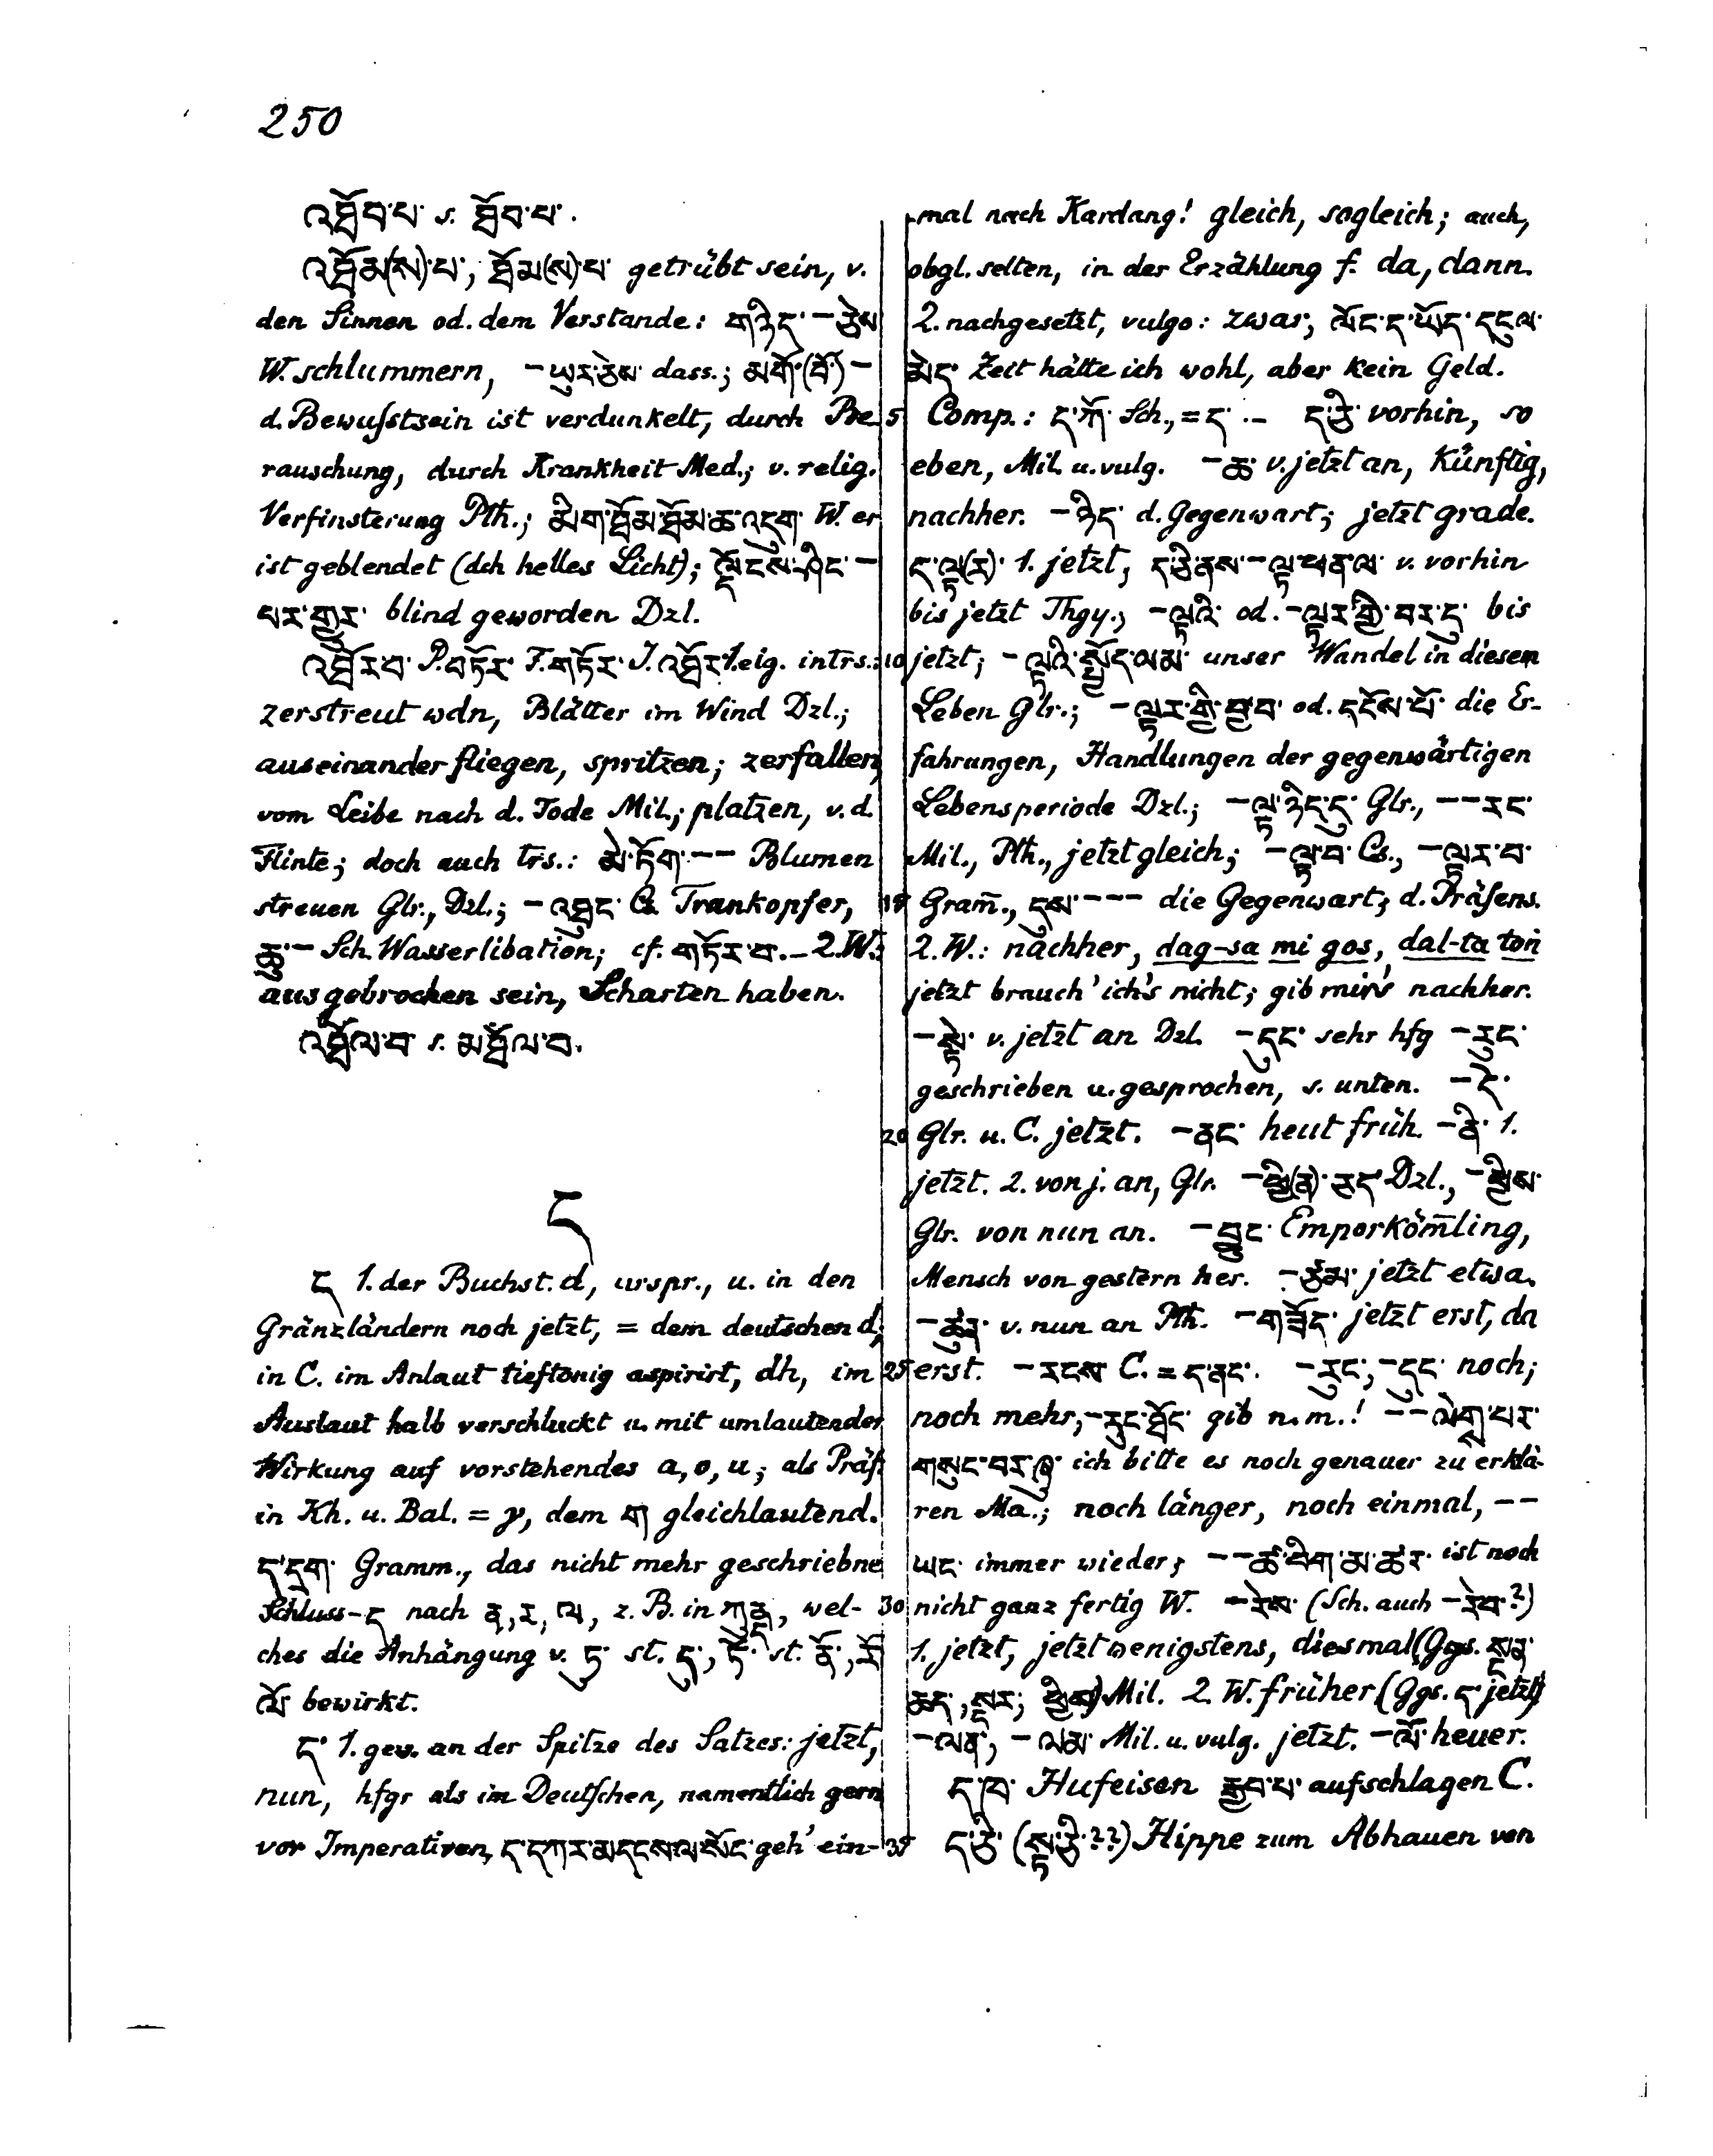 250
འཐོབ་པ་ s. ཐོབ་པ་.
འཐོམ(ས)་པ་, ཐོམ(ས)་པ་ getrübt sein, v.
den Sinnen od. dem Verstande: གཉིད་ – ཅེས
W. schlummern, – ཡུར་ཅེས་ dass.; མགོ་(བོ་) –
d. Bewuſstsein ist verdunkelt, durch Be-
rauschung, durch Krankheit Med.; v. relig.
Verfinsterung Pth.; མིག་ཐོམ་ཐོམ་ཆ་འདུག་ W. er
ist geblendet (dch helles Licht); ལྡོངས་ཤིང་ –
པར་གྱུར་ blind geworden Dzl.
འཐོར་བ་ P. བཏོར་ F. གཏོར་ J. འཐོར་ 1. eig. intrs.:
zerstreut wdn, Blätter im Wind Dzl.;
auseinander fliegen, spritzen; zerfallen,
vom Leibe nach d. Tode Mil.; platzen, v. d.
Flinte; doch auch trs.: མེ་ཏོག་ – – Blumen
streuen Glr., Dzl.; – འཐུང་ Cs. Trankopfer,
ཆུ་ – Sch. Wasserlibation; cf. གཏོར་བ་. – 2. W.:
ausgebrochen sein, Scharten haben.
འཐོལ་བ་ s. མཐོལ་བ་.
ད
ད 1. der Buchst. d, urspr., u. in den
Gränzländern noch jetzt, = dem deutschen d;
in C. im Anlaut tieftonig aspirirt, dh, im
Auslaut halb verschluckt u. mit umlautender
Wirkung auf vorstehendes a, o, u; als Präf.
in Kh. u. Bal. = γ, dem ག gleichlautend.
ད་དྲག་ Gramm., das nicht mehr geschriebne
Schluss-ད nach ན, ར, ལ, z. B. in ཀུནད, wel-
ches die Anhängung v. ཏུ་ st. དུ་, ཏོ་ st. ནོ་, རོ
ལོ bewirkt.
ད་ 1. gew. an der Spitze des Satzes: jetzt,
nun, hfgr als im Deutſchen, namentlich gern
vor Imperativen, ད་དཀར་མདངས་ལ་སོང་ geh' ein-
mal nach Kardang! gleich, sogleich; auch,
obgl. selten, in der Erzählung f. da, dann.
2. nachgesetzt, vulgo: zwar; ལོང་ད་ཡོད་དངུལ་
མེད་ Zeit hätte ich wohl, aber kein Geld.
5 Comp.: ད་ཀོ་ Sch., = ད་ .– ད་ཅི་ vorhin, so
eben, Mil. u. vulg. – ཆ་ v. jetzt an, künftig,
nachher. – ཉིད་ d. Gegenwart; jetzt grade.
ད་ལྟ(ར)་ 1. jetzt, ད་ཅི་ནས་ – ལྟ་ཕན་ལ་ v. vorhin
bis jetzt Thgy., – ལྟའི་ od. – ལྟར་གྱི་བར་དུ་ bis
10 jetzt; – ལྟའི་སྤྱོད་ལམ་ unser Wandel in diesem
Leben Glr.; – ལྟར་གྱི་བྱ་བ་ od. དངོས་པོ་ die Er-
fahrungen, Handlungen der gegenwärtigen
Lebensperiode Dzl.; – ལྟ་ཉིད་དུ་ Glr., – – རང་
Mil., Pth., jetzt gleich; – ལྟ་བ་ Cs., – ལྟར་བ་
15 Gram̄., དུས་ – – – die Gegenwart; d. Präſens.
2. W.: nachher, dag-sa mi gos, dal-ta toṅ
jetzt brauch' ich's nicht; gib mir's nachher.
– སྟེ་ v. jetzt an Dzl. – དུང་ sehr hfg – རུང་
geschrieben u. gesprochen, s. unten. – དེ་
20 Glr. u. C. jetzt. – ནང་ heut früh. – ནི་ 1.
jetzt. 2. von j. an, Glr. – ཕྱི(ན)་ཆད་ Dzl., – ཕྱིས་
Glr. von nun an. – བྱུང་ Emporköm̄ling,
Mensch von gestern her. – ཙམ་ jetzt etwa.
– ཚུན་ v. nun an Pth. – གཟོད་ jetzt erst, da
25 erst. – རངས་ C. = ད་ནང་. – རུང་, – དུང་ noch;
noch mehr, – རུང་ཐོང་ gib n. m.! – – ལེགས་པར་
གསུང་བར་ཞུ་ ich bitte es noch genauer zu erklä-
ren Ma.; noch länger, noch einmal, – –
ཡང་ immer wieder; – – ཚ་བིག་མ་ཚར་ ist noch
30 nicht ganz fertig W. – རེས་ (Sch. auch – རེབ་?)
1. jetzt, jetzt wenigstens, diesmal (Ggs. སྔན་
ཆད་, སྔར་, ཕྱིས་) Mil. 2. W. früher (Ggs. ད་ jetzt)
– ལན་, – ལམ་ Mil. u. vulg. jetzt. – ལོ་ heuer.
ད་ཁ་ Hufeisen རྒྱབ་པ་ aufschlagen C.
35 ད་ཅི་ (སྟ་ཅི་??) Hippe zum Abhauen von